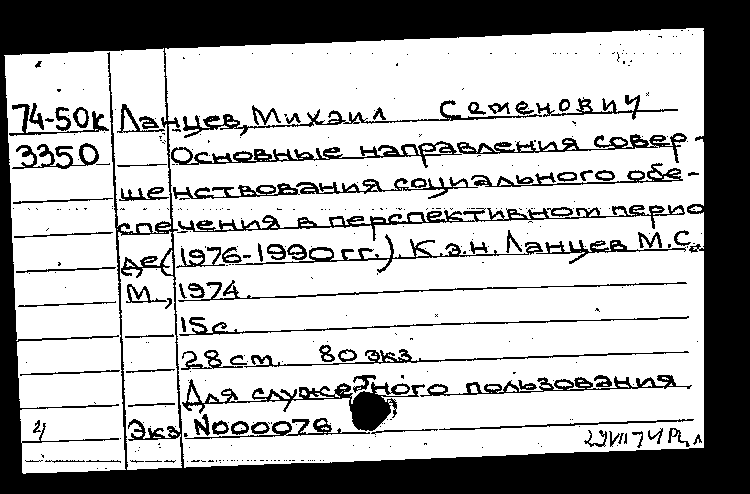 74-50к Ланцев, Михаил Семенович
3350 Основные направления совер-
шенствования социального обе-
спечения в перспективном перио
де (1976-1990 гг.). К.э.н. Ланцев М.С.
М., 1974.
15 с.
28 см. 80 экз.
Для служебного пользования.
Экз. N000076.